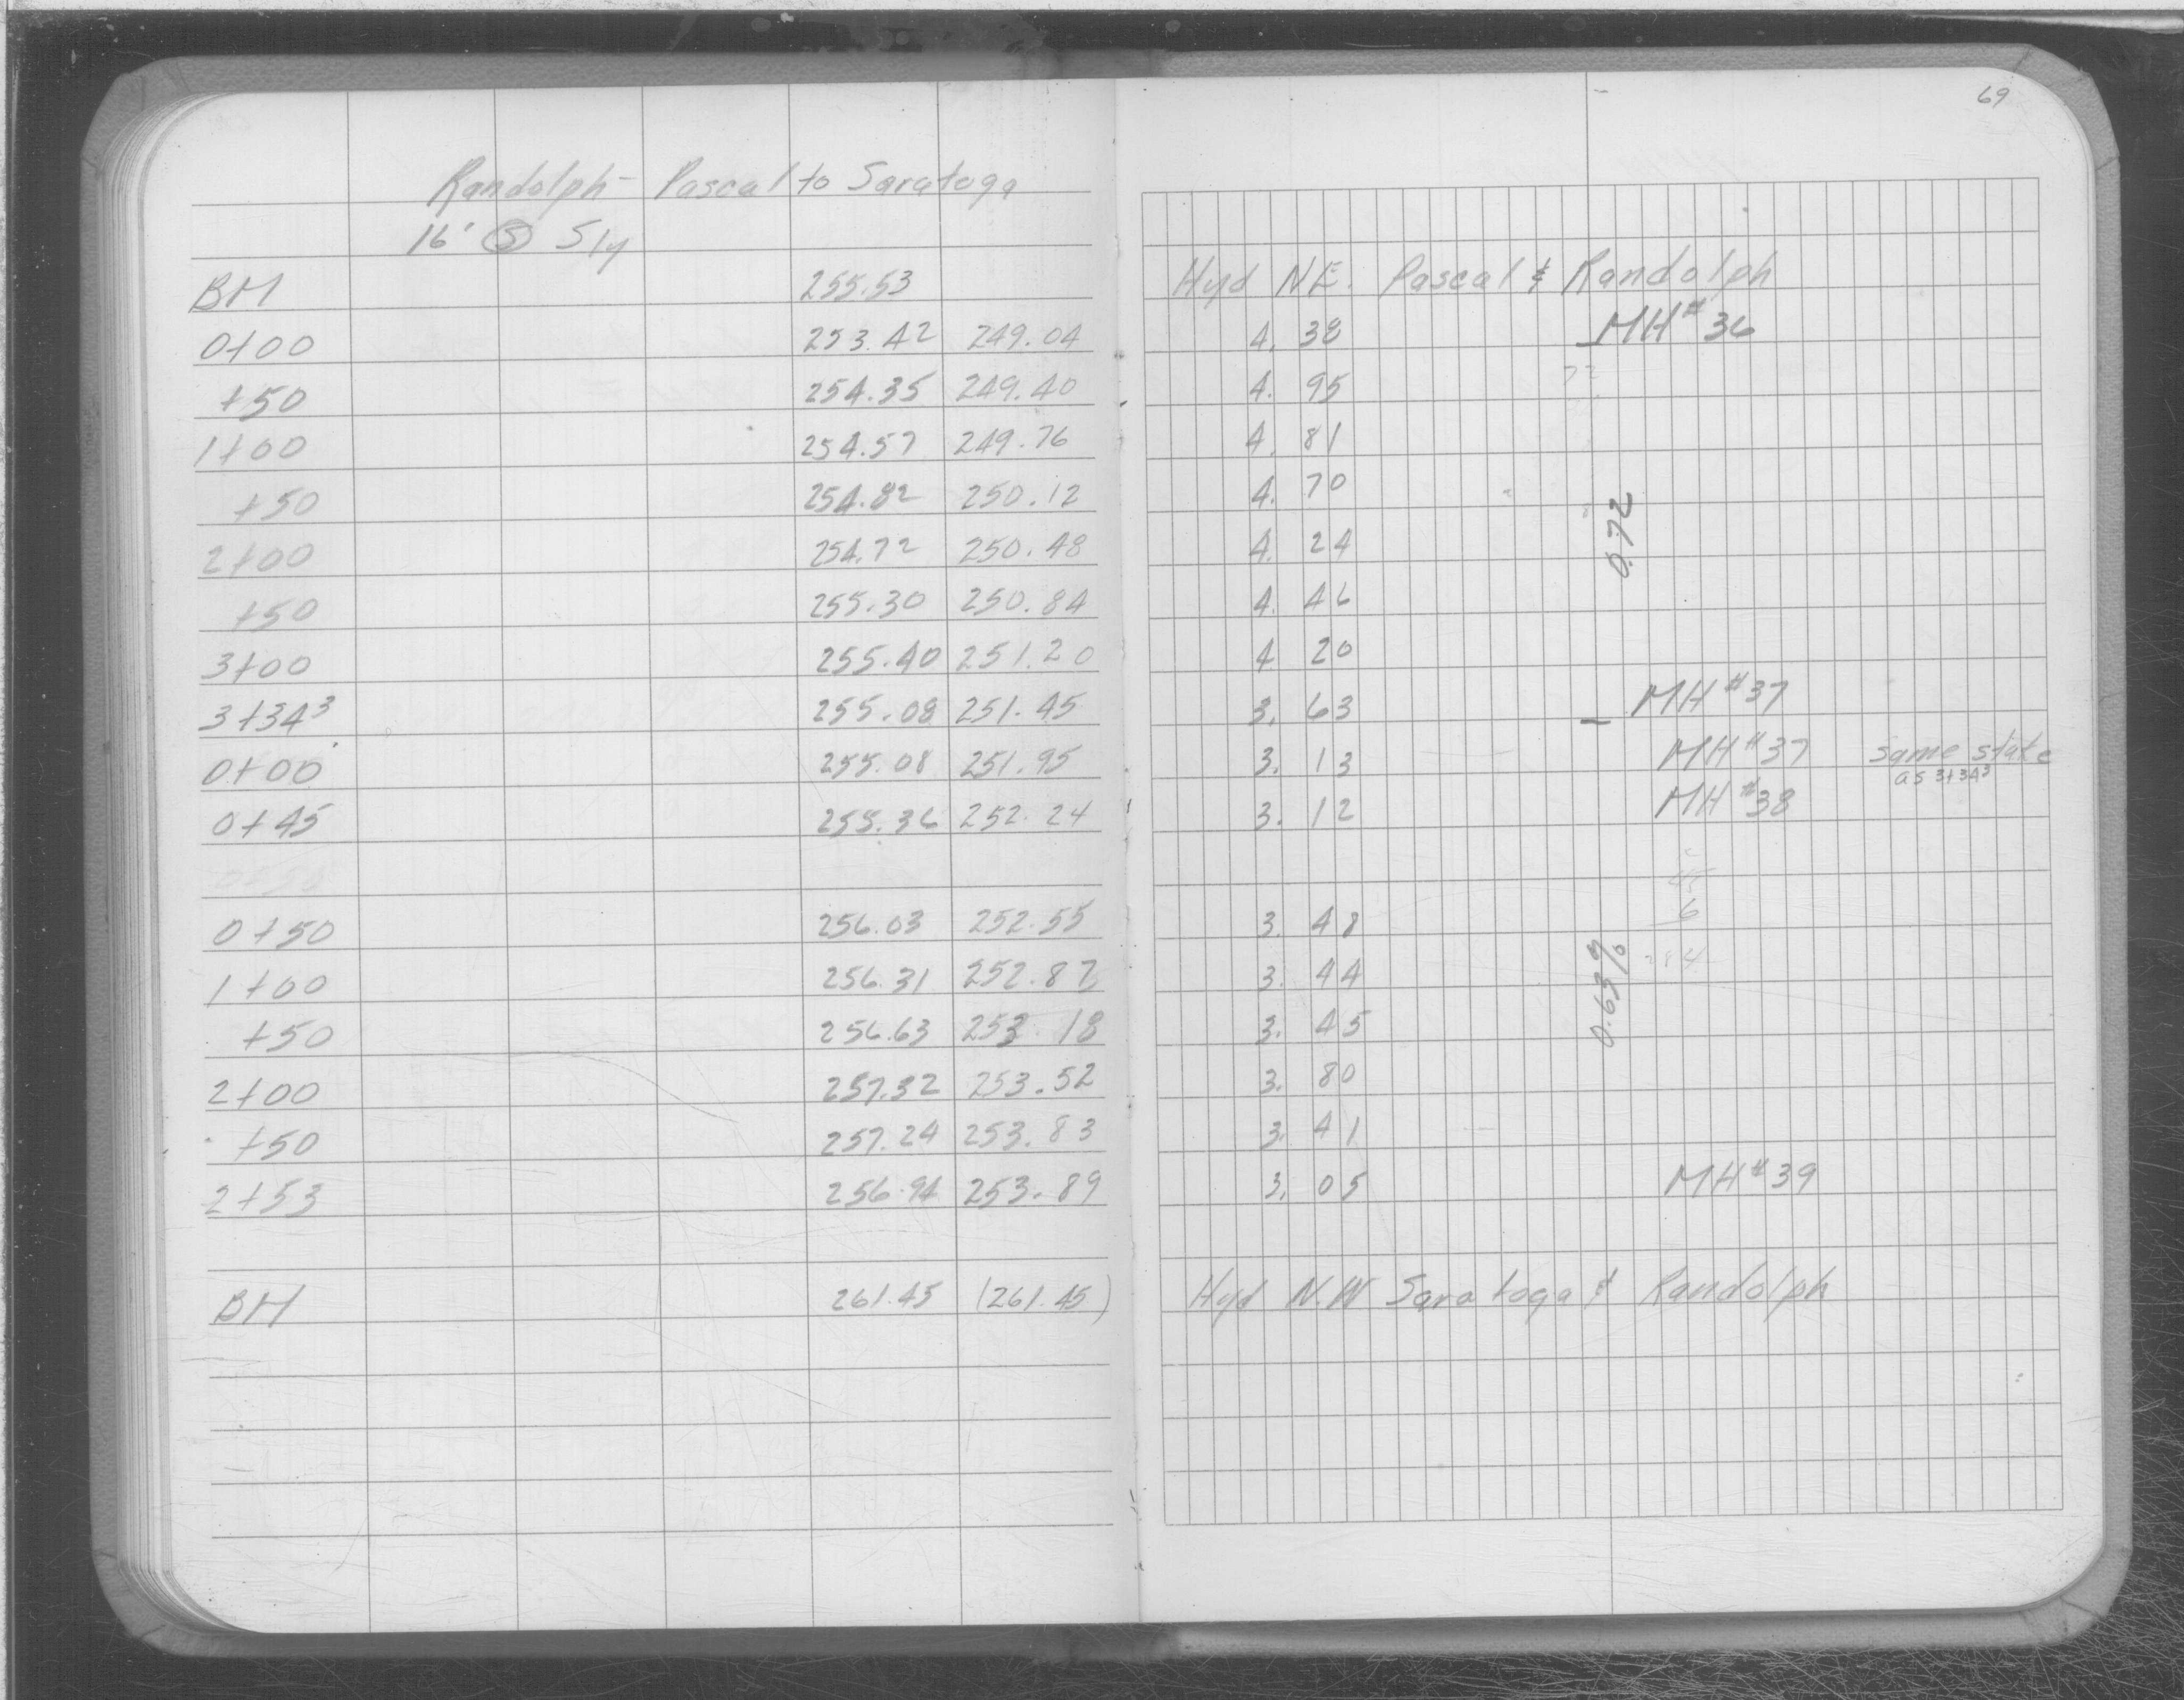 69
Randolph - Pascal to Saratoga
16' Ⓢ Sly
BM 255.53 Hyd N.E. Pascal & Randolph
0+00 253.42 249.04 4.38 MH #36
+50 254.35 249.40 4.95
1+00 254.57 249.76 4.81
+50 254.82 250.12 4.70
2+00 254.72 250.48 4.24 0.72
+50 255.30 250.84 4.46
3+00 255.40 251.20 4 20
3+34³ 255.08 251.45 3.63 MH #37
0+00 255.08 251.95 3.13 MH #37 same stake
as 3+34³
0+45 255.36 252.24 3.12 MH #38
0+50
0+50 256.03 252.55 3.48 6
1+00 256.31 252.87 3.44 0.63%
+50 256.63 253.18 3.45
2+00 257.32 253.52 3.80
+50 257.24 253.83 3.41
2+53 256.94 253.89 3.05 MH #39
BM 261.45 (261.45) Hyd N.W Saratoga & Randolph